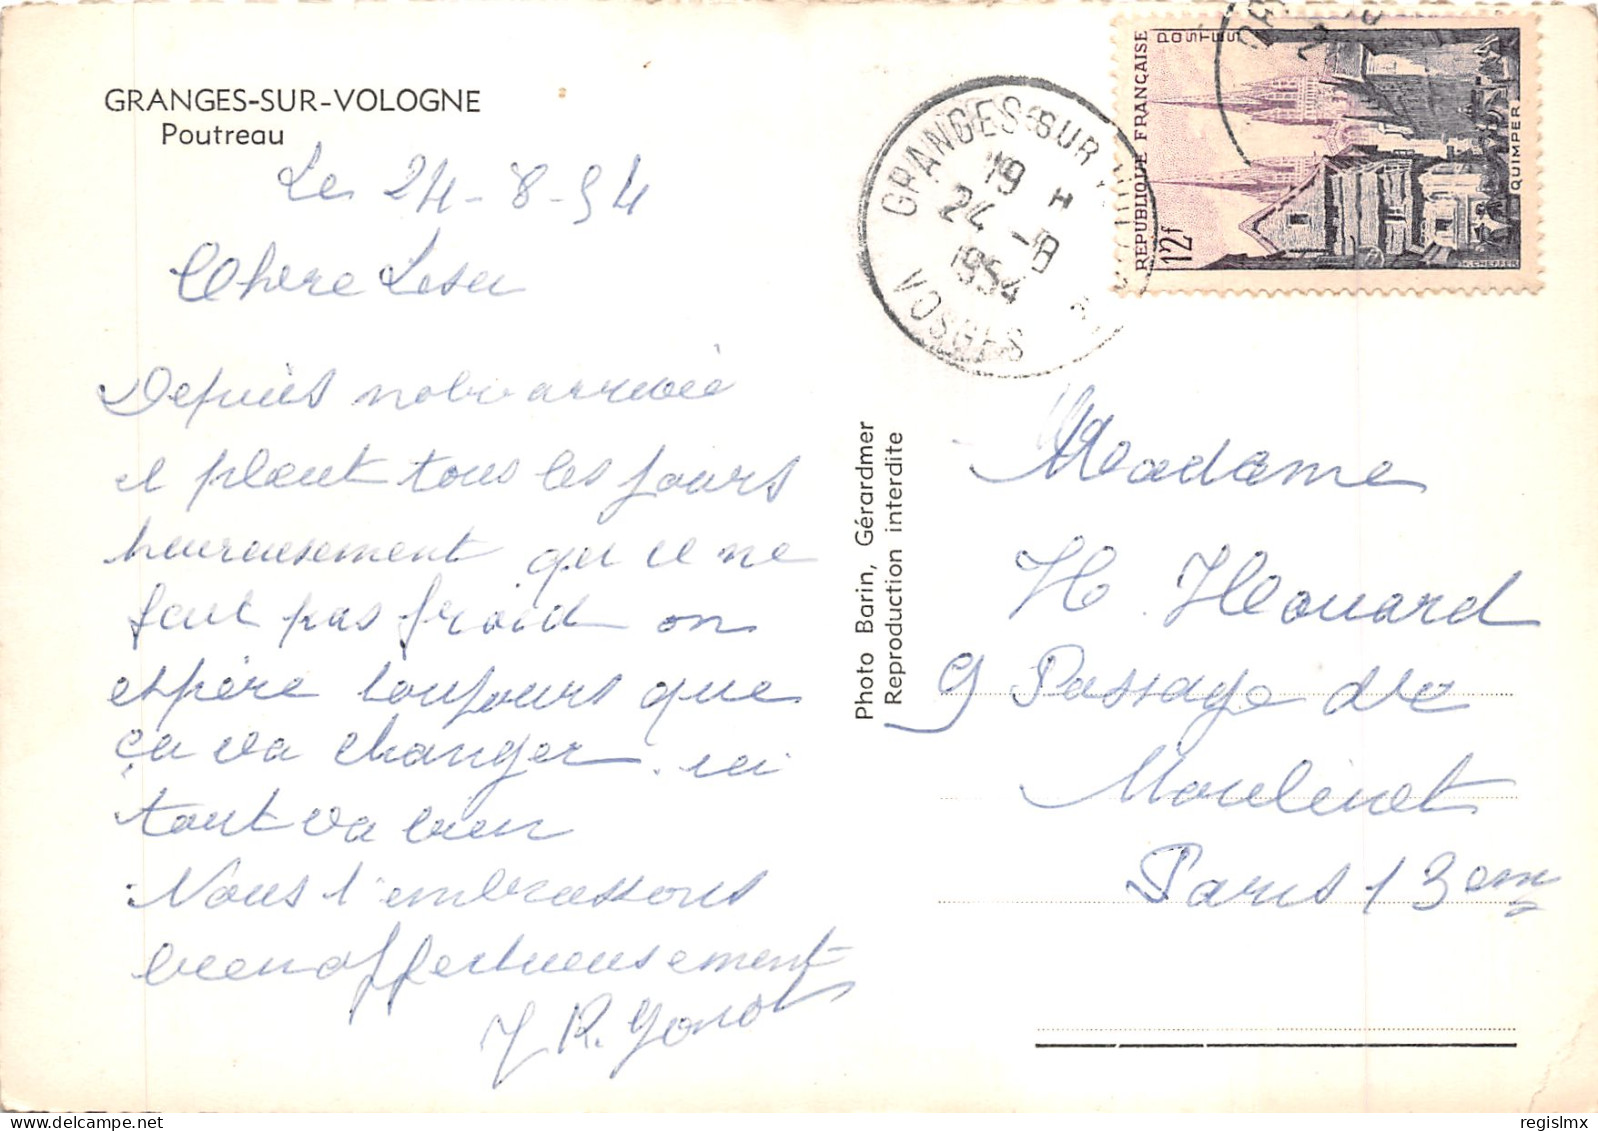 GRANGES-SUR-VOLOGNE
Poutreau
Le 24-8-54
Chere
Depuis notre arrivée
il pleut tous les jours
heureusement que il ne
fait pas froid on
espère toujours que
ça va changer. ici
tout va bien
Nous t'embrassons
bien affectueusement
Photo Barin, Gérardmer
Reproduction interdite
GRANGES SUR
19 H
24 -8
1954
VOSGES
REPUBLIQUE FRANÇAISE
POSTES
12f
QUIMPER
H. CHEFFER
Madame
H. Houard
9 Passage de
Moulinet
Paris 13em
regislmx